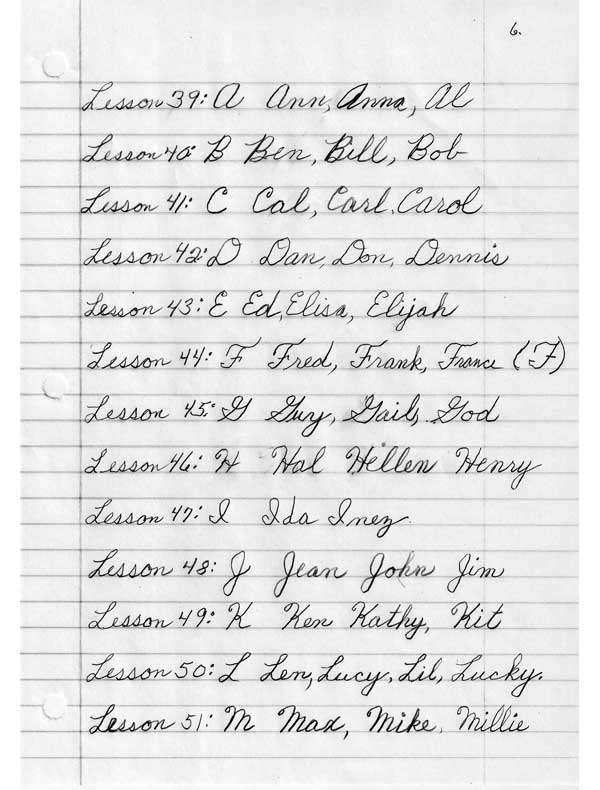 6.
Lesson 39: A Ann, Anna, Al
Lesson 40: B Ben, Bill, Bob
Lesson 41: C Cal, Carl, Carol
Lesson 42: D Dan, Don, Dennis
Lesson 43: E Ed, Elisa, Elijah
Lesson 44: F Fred, Frank, France (F)
Lesson 45: G Guy, Gail, God
Lesson 46: H Hal Hellen Henry
Lesson 47: I Ida Inez
Lesson 48: J Jean John Jim
Lesson 49: K Ken Kathy, Kit
Lesson 50: L Len, Lucy, Lil, Lucky.
Lesson 51: M Max, Mike, Millie